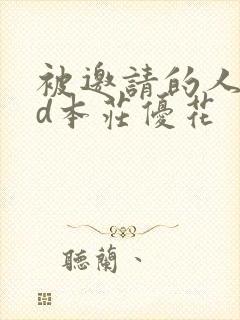 被邀請的人
d本莊優花
聽蘭、